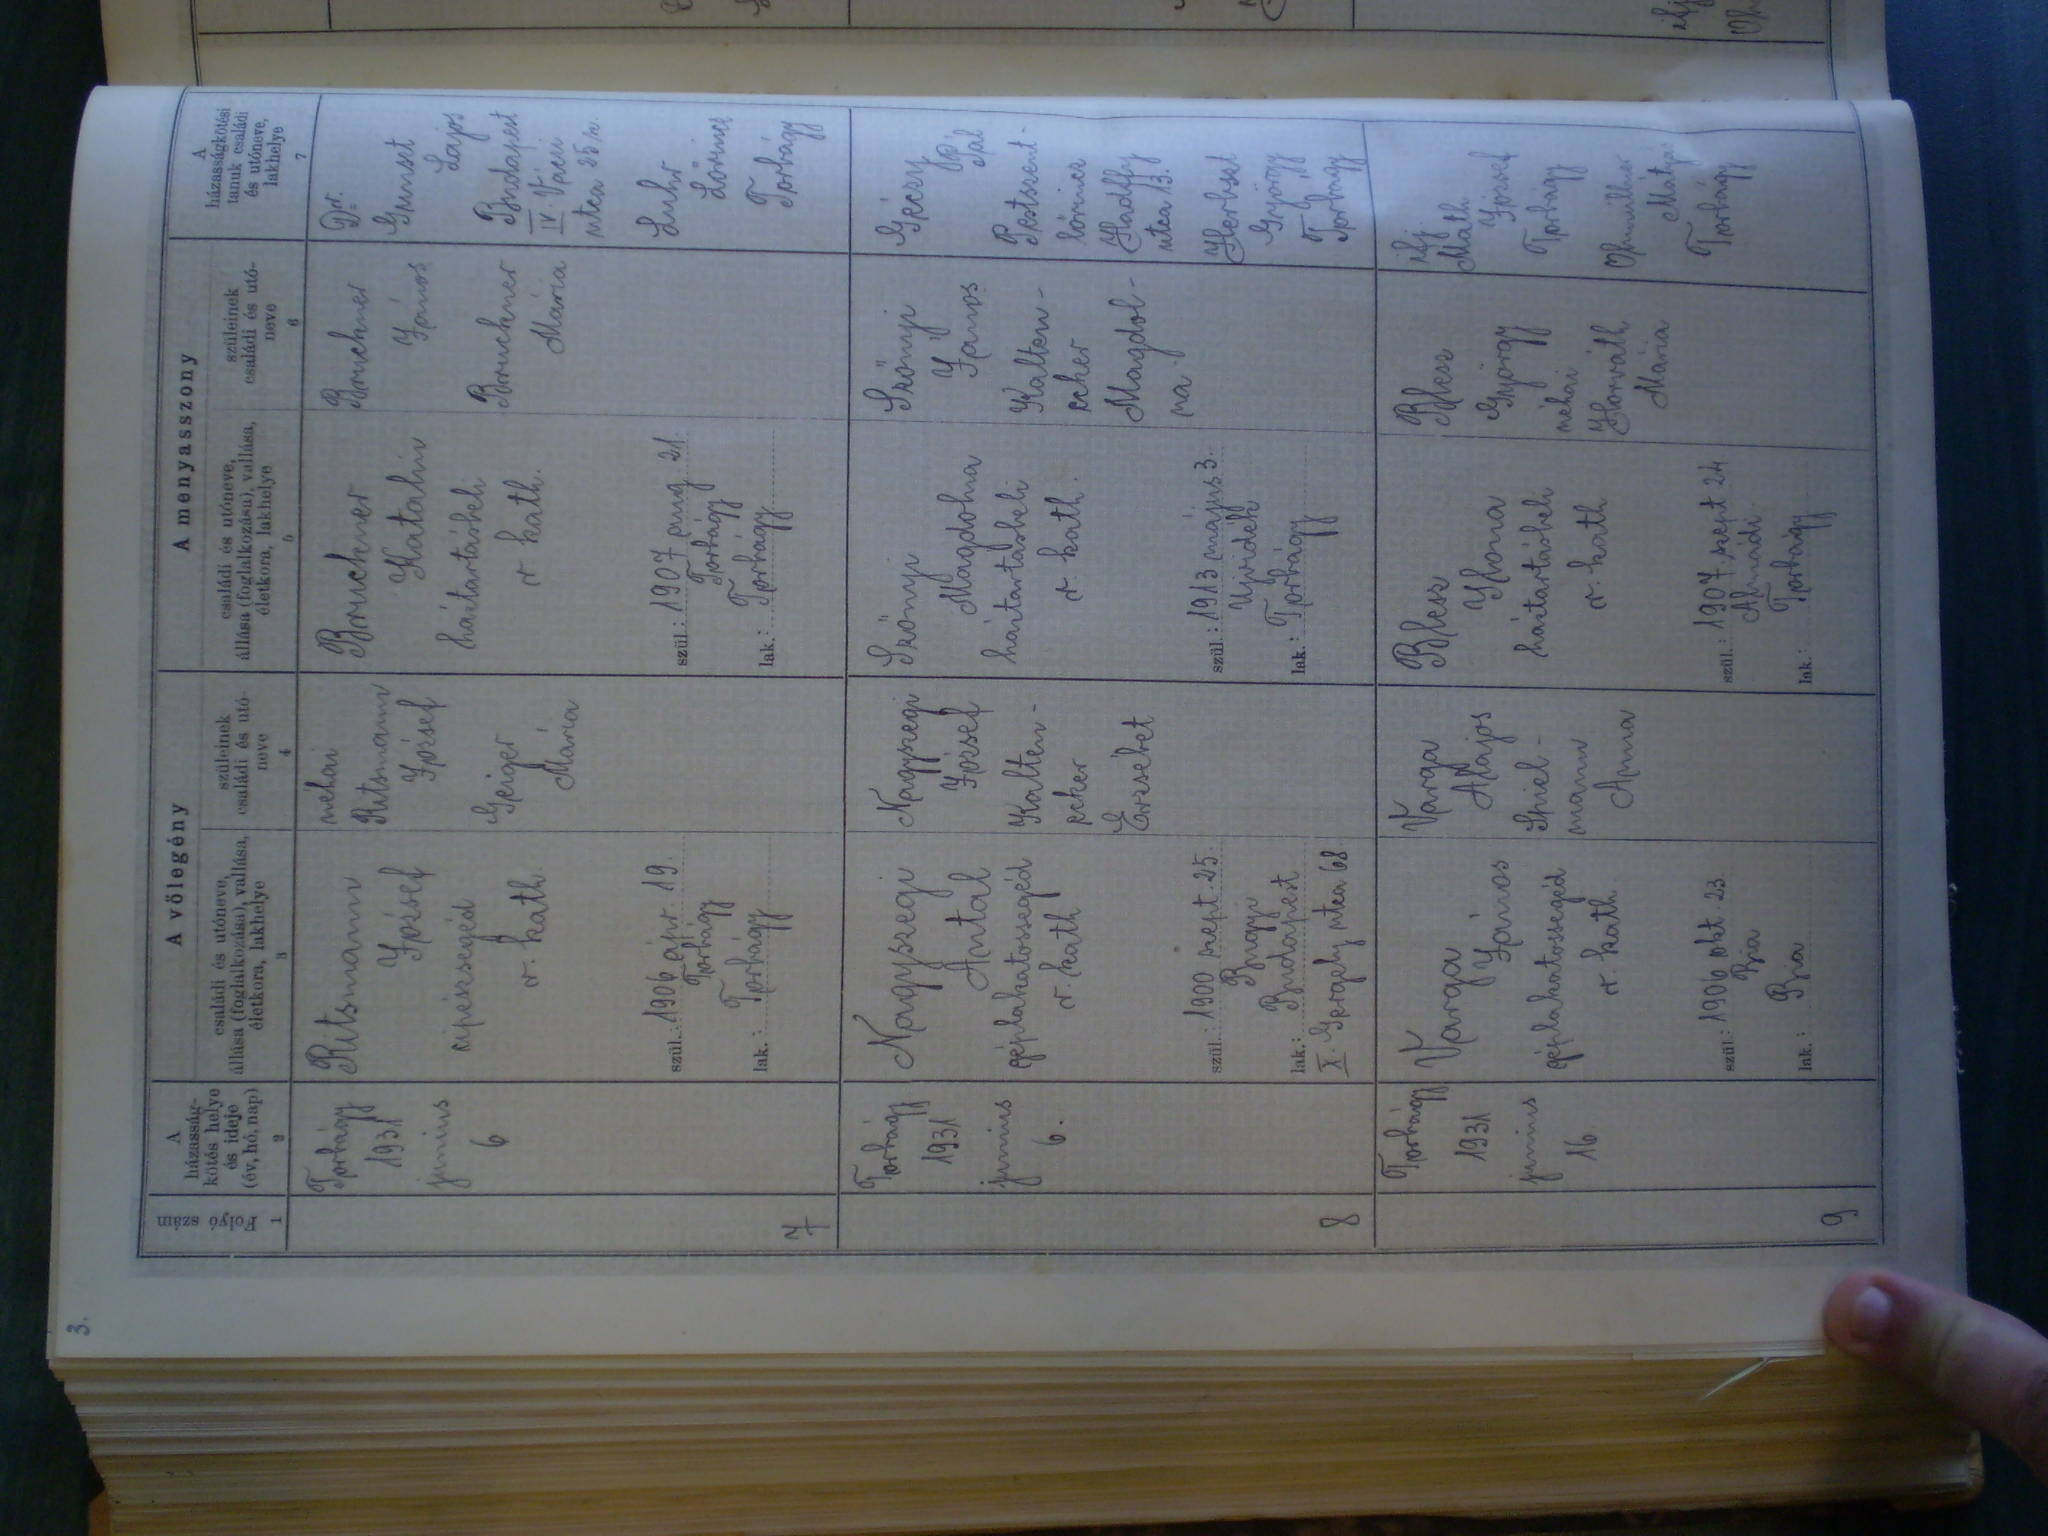 3.
Folyó
szám
1
A
házasság-
kötés helye
és ideje
(év, hó, nap)
2
A vőlegény
családi és utóneve,
állása (foglalkozása), vallása,
életkora, lakhelye
3
szüleinek
családi és utó-
neve
4
A menyasszony
családi és utóneve,
állása (foglalkozása), vallása,
életkora, lakhelye
5
szüleinek
családi és utó-
neve
6
A
házasságkötési
tanuk családi
és utóneve,
lakhelye
7
7
Torbágy
1931
junius
6
Ritsmann
József
cipészsegéd
r. kath.
szül.: 1906 ápr. 19.
Torbágy
lak.: Torbágy
néhai
Ritsmann
József
Geiger
Mária
Bruckner
Katalin
háztartásbeli
r. kath.
szül.: 1907 aug 21.
Torbágy
lak.: Torbágy
Bruckner
János
Bruckner
Mária
Dr.
Lajos
Budapest
IV. Váci
utca 25 sz.
Luhr
Lőrinc
Torbágy
8
Torbágy
1931
junius
6.
Nagyszegi
Antal
géplakatossegéd
r. kath
szül.: 1900 szept. 25.
Bugyi
lak.: Budapest
X. Gergely utca 68
Nagyszegi
József
Kalten-
ecker
Erzsébet
Szőnyi
Magdolna
háztartásbeli
r. kath.
szül.: 1913 május 3.
Ujvidék
lak.: Torbágy
Szőnyi
János
Kalten-
ecker
Magdol-
na
Géczy
Pál
Pestszent-
lőrincz
Hadffy
utca 13.
Herbszt
György
Torbágy
9
Torbágy
1931
junius
16.
Varga
János
géplakatossegéd
r. kath.
szül.: 1906 okt. 23.
Bia
lak.: Bia
Varga
Alajos
Spiel-
mann
Anna
Blesz
Ilona
háztartásbeli
r. kath
szül.: 1907. szept 24
Almádi
lak.: Torbágy
Blesz
György
néhai
Horváth
Mária
ifj
Math
József
Torbágy
Ohmüllner
Mátyás
Torbágy